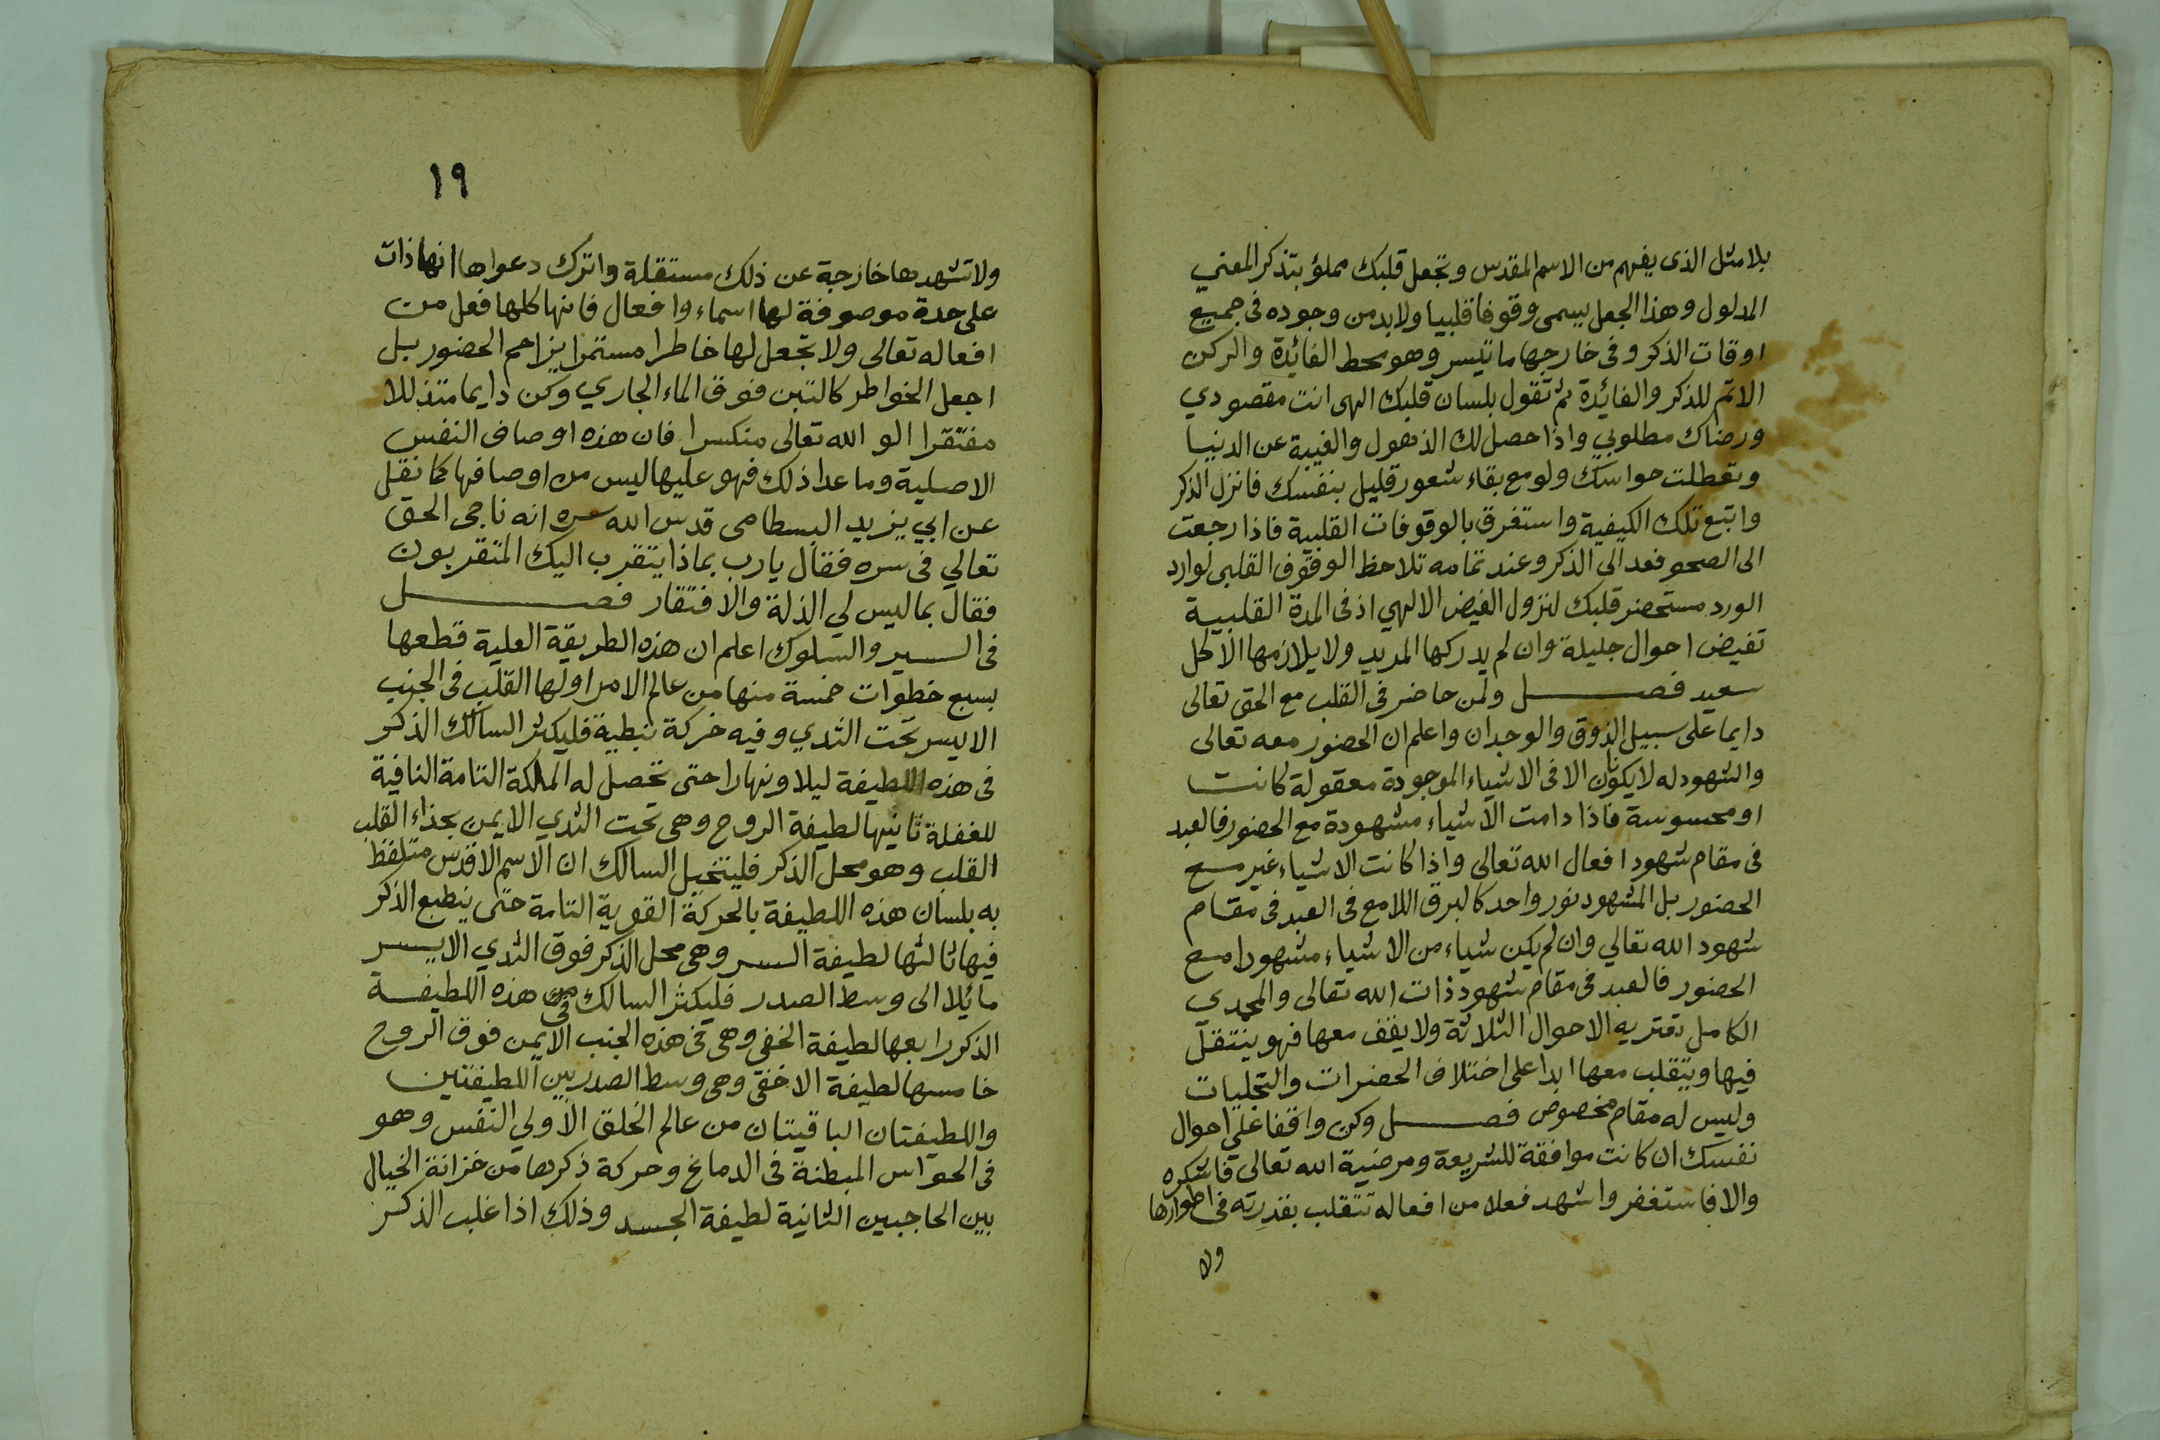 بلا مثل الذى يفهم من الاسم المقدس وتجعل قلبك مملؤ بتذكر المعني
المدلول وهذا الجعل يسمى وقوفا قلبيا ولا بد من وجوده فى جميع
اوقات الذكر وفى خارجها ما تيسر وهو محط الفائدة والركن
الاتم للذكر والفائدة ثم تقول بلسان قلبك الهى انت مقصودي
ورضاك مطلوبي واذا حصل لك الذهول والغيبة عن الدنيا
وتعطلت حواسك ولو مع بقاء شعور قليل بنفسك فانزل الذكر
واتبع تلك الكيفية واستغرق بالوقوفات القلبية فاذا رجعت
الى الصحو فعد الى الذكر وعند تمامه تلاحظ الوقوف القلبى لوارد
الورد مستحضر قلبك لنزول الفيض الالهي اذ فى المدة القلبية
تفيض احوال جليلة وان لم يدركها المريد ولا يلازمها الا كل
سعيد فصل ولمن حاضر فى القلب مع الحق تعالى
دايما على سبيل الذوق والوجدان واعلم ان الحضور معه تعالى
والشهود له لا يكونان الا فى الاشياء الموجودة معقولة كانت
او محسوسة فاذا دامت الاشياء مشهودة مع الحضور فالعبد
فى مقام شهود افعال الله تعالى واذا كانت الاشياء غير مع
الحضور بل المشهود نور واحد كالبرق اللامع فى العبد فى مقام
شهود الله تعالي وان لم يكن شياء من الاشياء مشهودا مع
الحضور فالعبد فى مقام شهود ذات الله تعالى والمحمدى
الكامل تعتريه الاحوال الثلاثة ولا يقف معها فهو ينتقل
فيها ويتقلب معها ابدا على اختلاف الحضرات والتجليات
وليس له مقام مخصوص فصل وكن واقفا علي احوال
نفسك ان كانت موافقة للشريعة ومرضية الله تعالى فاشكره
والا فاستغفر واشهد فعلا من افعاله تتقلب بقدرته فى اطوارها
ولا
١٩
ولا تشهدها خارجة عن ذلك مستقلة واترك دعواها انها ذات
على حدة موصوفة لها اسماء وافعال فانها كلها فعل من
افعاله تعالى ولا تجعل لها خاطرا مستمرا يزاحم الحضور بل
اجعل الخواطر كالتبن فوق الماء الجاري وكن دايما متذللا
مفتقرا الو الله تعالى منكسرا فان هذه اوصاف النفس
الاصلية وما عدا ذلك فهو عليها ليس من اوصافها كما نقل
عن ابي يزيد البسطامى قدس الله سره انه ناجى الحق
تعالي فى سره فقال يارب بماذا يتقرب اليك المتقربون
فقال بما ليس لي الذلة والافتقار فصل
فى السير والسلوك اعلم ان هذه الطريقة العلية قطعها
بسبع خطوات خمسة منها من عالم الامر اولها القلب فى الجنب
الايسر تحت الثدي وفيه حركة نبطية فليكثر السالك الذكر
فى هذه اللطيفة ليلا ونهارا حتى تحصل له الملكة التامة النافية
للغفلة ثانيها لطيفة الروح وهى تحت الثدي الايمن بحذاء القلب
القلب وهو محل الذكر فليتخيل السالك ان الاسم الاقدس متلفظ
به بلسان هذه اللطيفة بالحركة القوية التامة حتى ينطبع الذكر
فيها ثالثها لطيفة السر وهى محل الذكر فوق الثدي الايسر
مائلا الى وسط الصدر فليكثر السالك فى هذه اللطيفة
الذكر رابعها لطيفة الخفى وهى فى هذه الجنب الايمن فوق الروح
خامسها لطيفة الاخفى وهى وسط الصدر بين اللطيفتين
واللطيفتان الباقيتان من عالم الخلق الاولي النفس وهو
فى الحواس المبطنة فى الدماغ وحركة ذكرها من خزانة الخيال
بين الحاجبين الثانية لطيفة الجسد وذلك اذا غلب الذكر